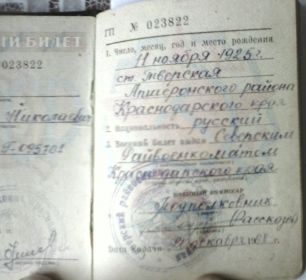 ЫЙ БИЛЕТ
023822
Николаевич
ГП № 023822
1. Число, месяц, год и место рождения
11 ноября 1925 г.
ст. Тверская
Апшеронского района
Краснодарского края
2. Национальность русский
3. Военный билет выдан Северским
Райвоенкоматом
Краснодарского края
Военный комиссар
Подполковник
Дата выдачи